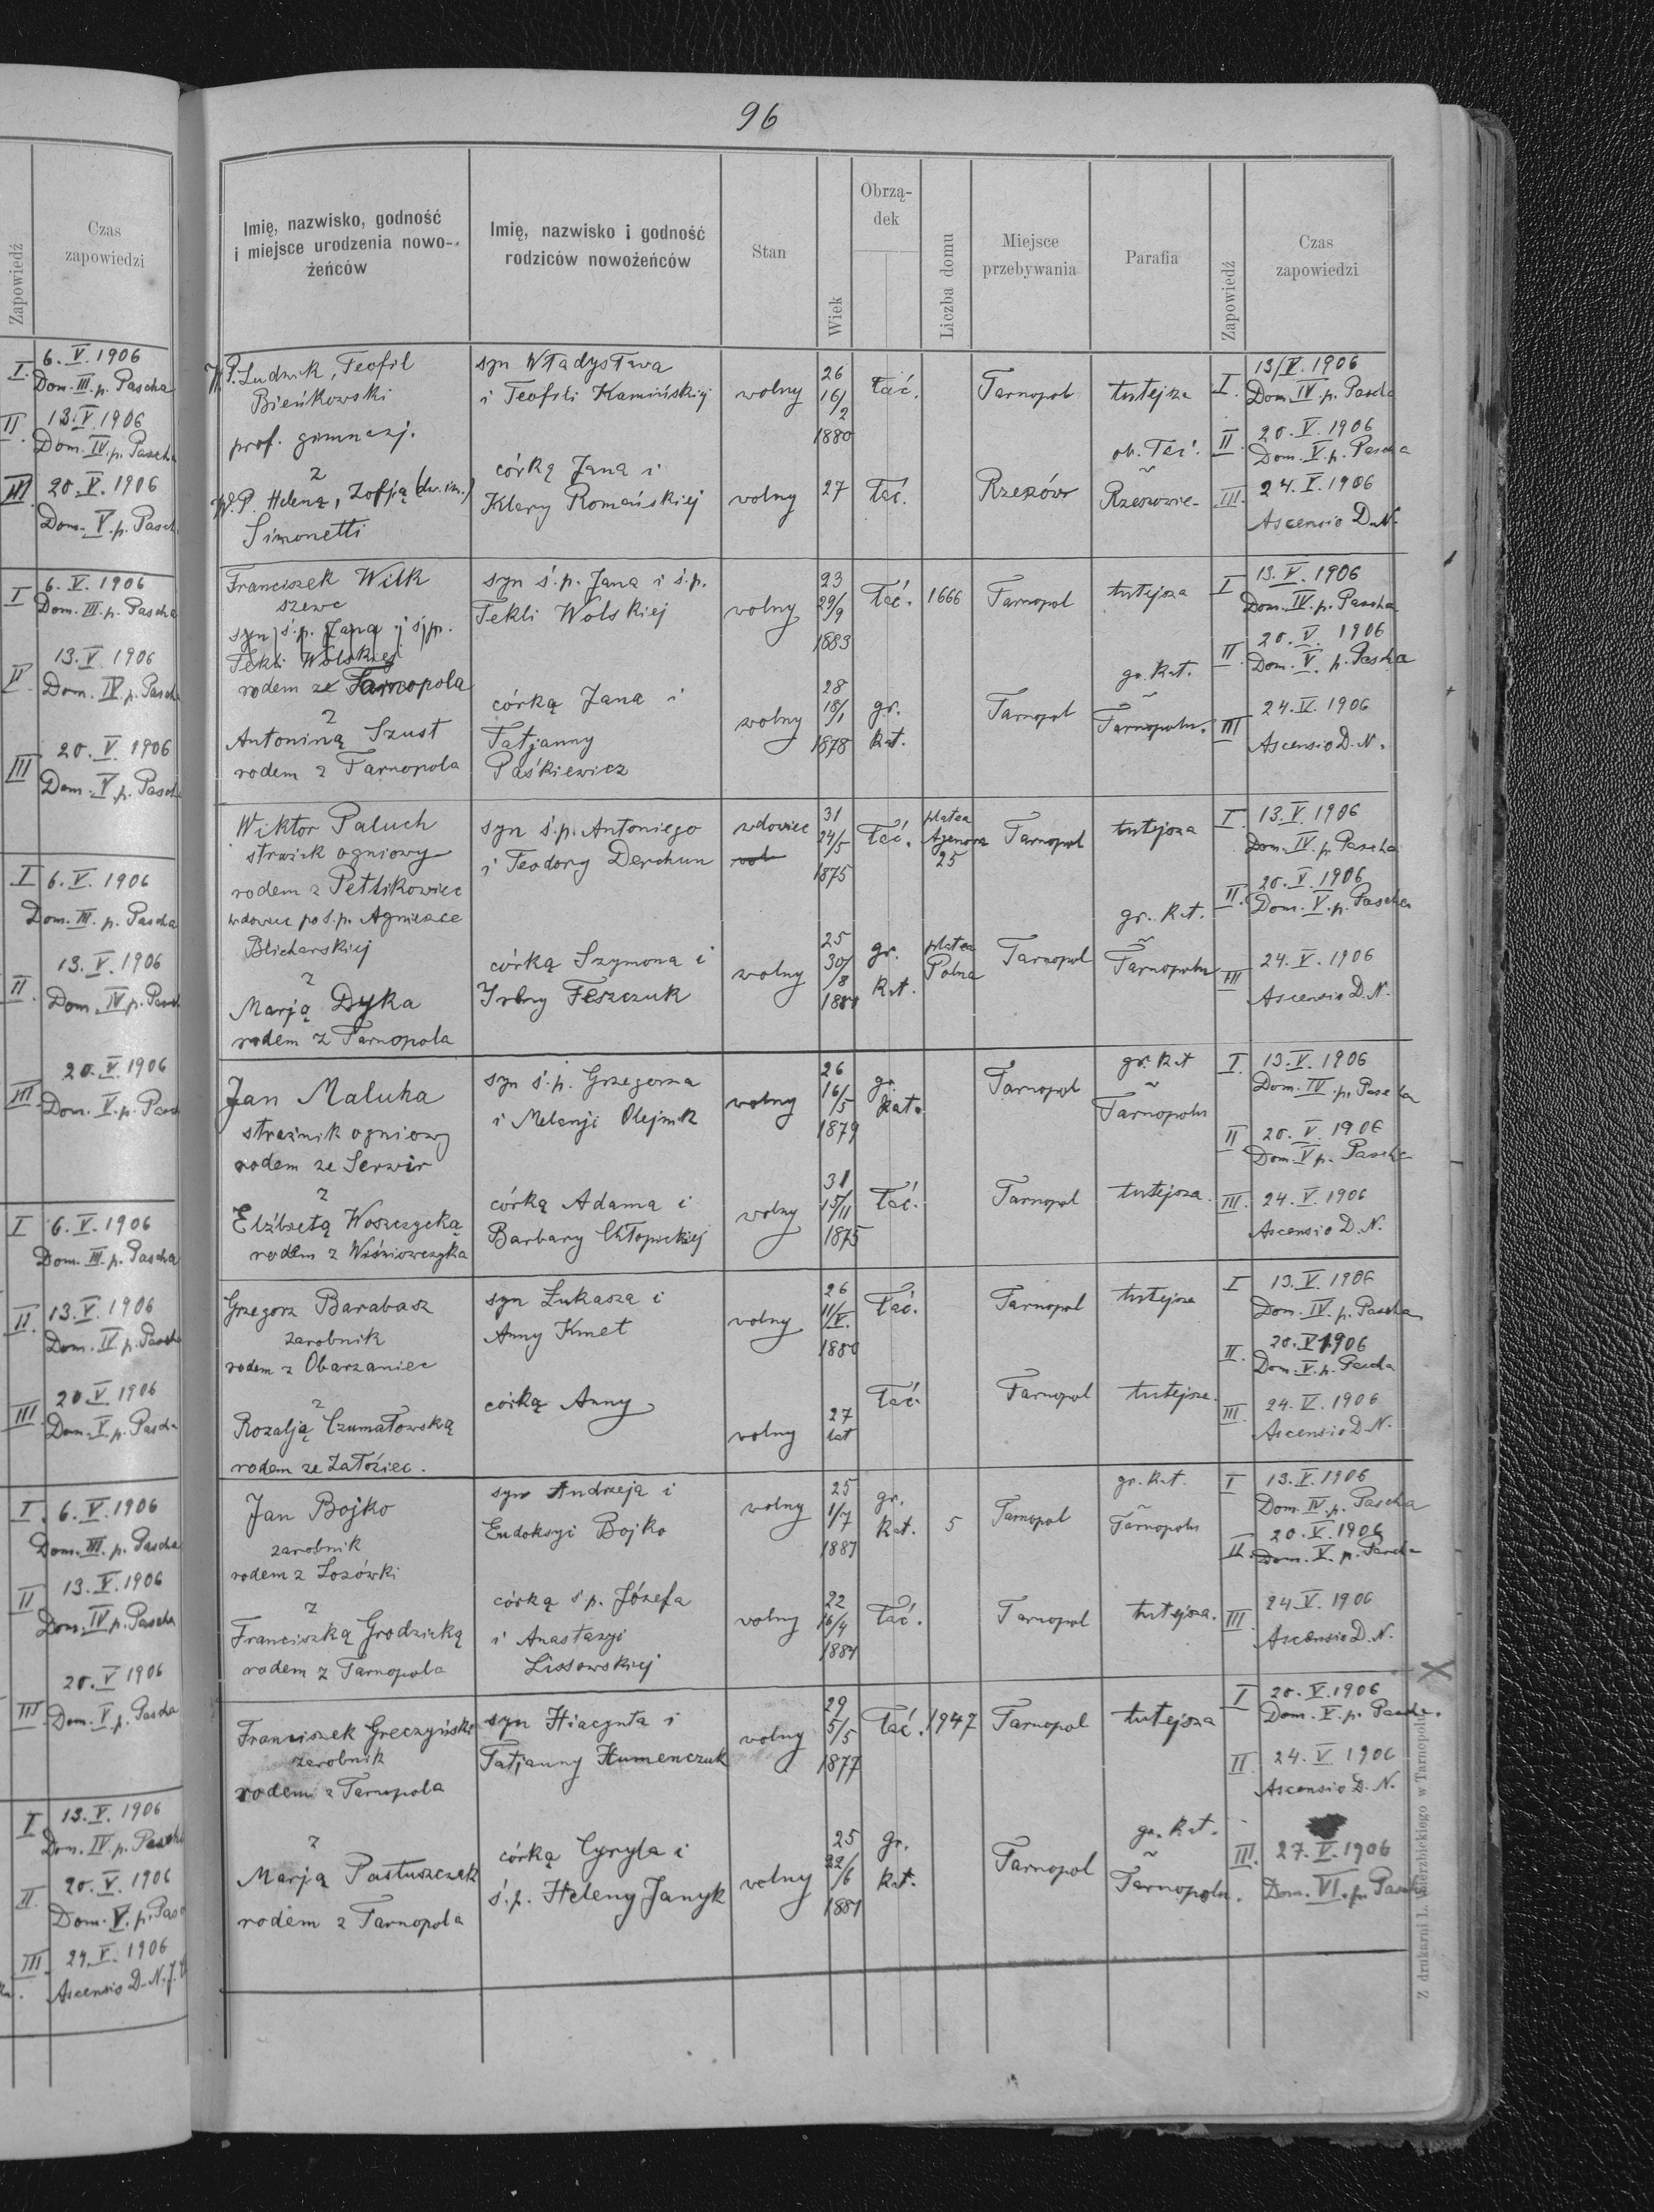 Zapowiedź
Czas
zapowiedzi
I. 6. V. 1906
Dom. III. p. Pascha
II. 13. V. 1906
Dom. IV. p. Pascha
III. 20. V. 1906
Dom. V. p. Pasch
I 6. V. 1906
Dom. III. p. Pascha
II. 13. V. 1906
Dom. IV. p. Pasch
III 20. V. 1906
Dom. V. p. Pasch
I 6. V. 1906
Dom. III. p. Pascha
II. 13. V. 1906
Dom. IV. p. Pasch
III. 20. V. 1906
Dom. V. p. Pasch
I 6. V. 1906
Dom. III. p. Pascha
II. 13. V. 1906
Dom. IV. p. Pasch
III. 20. V. 1906
Dom. V. p. Pascha
I. 6. V. 1906
Dom. III. p. Pascha
II 13. V. 1906
Dom. IV p. Pascha
20. V 1906
III. Dom. V. p. Pascha
I 13. V. 1906
Dom. IV. p. Pasch
II. 20. V. 1906
Dom. V. p. Pasc
III. 24. V. 1906
Ascensio D. N. J.
96
Imię, nazwisko, godność
i miejsce urodzenia nowo-
żeńców
Imię, nazwisko i godność
rodziców nowożeńców
Stan
Wiek
Obrzą-
dek
Liczba domu
Miejsce
przebywania
Parafia
Zapowiedź
Czas
zapowiedzi
W.P. Ludwik, Teofil
Bieńkowski
prof. gimnazj.
z
W.P. Heleną, Zofją (dw. im.)
Simonetti
syn Władysława
i Teofili Kamińskiej
córką Jana i
Klary Romańskiej
wolny
wolny
26
16/
2
1880
27
łać.
łać.
Tarnopol
Rzeszów
tutejsza
ob. łać.
~
Rzeszowie-
I. 13/V. 1906
Dom. IV. p. Pascha
II. 20. V. 1906
Dom. V. p. Pascha
III. 24. V. 1906
Ascensio D. N.
Franciszek Wilk
szewc
syn ś.p. Jana i ś.p.
Tekli Wolskiej
rodem ze Tarnopola
z
Antoniną Szust
rodem z Tarnopola
syn ś.p. Jana i ś.p.
Tekli Wolskiej
córką Jana i
Tatjanny
Paśkiewicz
wolny
wolny
23
29/9
1883
28
18/1
1878
łać.
gr.
kat.
1666
Tarnopol
Tarnopol
tutejsza
gr. kat.
~
Tarnopolu.
I 13. V. 1906
Dom. IV. p. Pascha
II. 20. V. 1906
Dom. V. p. Pascha
III 24. V. 1906
Ascensio D. N.
Wiktor Paluch
strażnik ogniowy
rodem z Petlikowiec
wdowiec po ś.p. Agnieszce
Blicharskiej
z
Marją Dyka
rodem z Tarnopola
syn ś.p. Antoniego
i Teodory Derchun
córką Szymona i
Feszczuk
wdowiec
wol
wolny
31
24/5
1875
25
30/8
1881
łać.
gr.
kat.
platea
Agenora
25
platea
Polna
Tarnopol
Tarnopol
tutejsza
gr. kat.
~
Tarnopolu
I. 13. V. 1906
Dom. IV. p. Pascha
II. 20. V. 1906
Dom. V. p. Pascha
III 24. V. 1906
Ascensio D. N.
Jan Maluha
strażnik ogniowy
rodem ze Serwir
z
Elżbietą Woszczycką
rodem z Wiśniowczyka
syn ś.p. Grzegorza
i Melanji Olejnik
córką Adama i
Barbary Chłopickiej
wolny
wolny
26
16/5
1879
31
15/11
1875
gr.
kat.
łać.
Tarnopol
Tarnopol
gr. kat
~
Tarnopolu
tutejsza.
I. 13. V. 1906
Dom. IV. p. Pascha
II. 20. V. 1906
Dom. V p. Pascha
III. 24. V. 1906
Ascensio D. N.
Grzegorz Barabasz
zarobnik
rodem z Obarzaniec
z
Rozalją Czumałowską
rodem ze Załoziec.
syn Łukasza i
Anny Kmet
córką Anny
wolny
wolny
26
11/V.
1880
27
lat
łać.
łać.
Tarnopol
Tarnopol
tutejsza
tutejsza.
I 13. V. 1906
Dom. IV. p. Pascha
II. 20. V 1906
Dom. V. p. Pascha
III. 24. V. 1906
Ascensio D. N.
Jan Bojko
zarobnik
rodem z Łozówki
z
Franciszką Grodzicką
rodem z Tarnopola
syn Andrzeja i
Eudoksyi Bojko
córką ś.p. Józefa
i Anastazyi
Lissowskiej
wolny
wolny
25
1/7
22
16/4
1884
gr.
kat.
łać.
5
Tarnopol
Tarnopol
gr. kat.
~
Tarnopolu
tutejsza.
I 13. V. 1906
Dom. IV. p. Pascha
II. 20. V. 1906
Dom. V. p. Pascha
III. 24. V. 1906
Ascensio D. N.
X
Franciszek Greczyński
zarobnik
rodem z Tarnopola
z
Marją Pastuszczak
rodem z Tarnopola
syn Hiacynta i
Tatjanny Humenczuk
córką Cyryla i
ś.p. Heleny Janyk
wolny
wolny
29
5/5
1877
25
22/6
1881
łać.
gr.
kat.
1947
Tarnopol
Tarnopol
tutejsza
gr. kat.
~
Tarnopolu.
I 20. V. 1906
Dom. V. p. Pascha.
II 24. V. 1906
Ascensio D. N.
III. 27. V. 1906
Dom. VI. p. Pascha
Z drukarni L. Wierzbickiego w Tarnopolu.